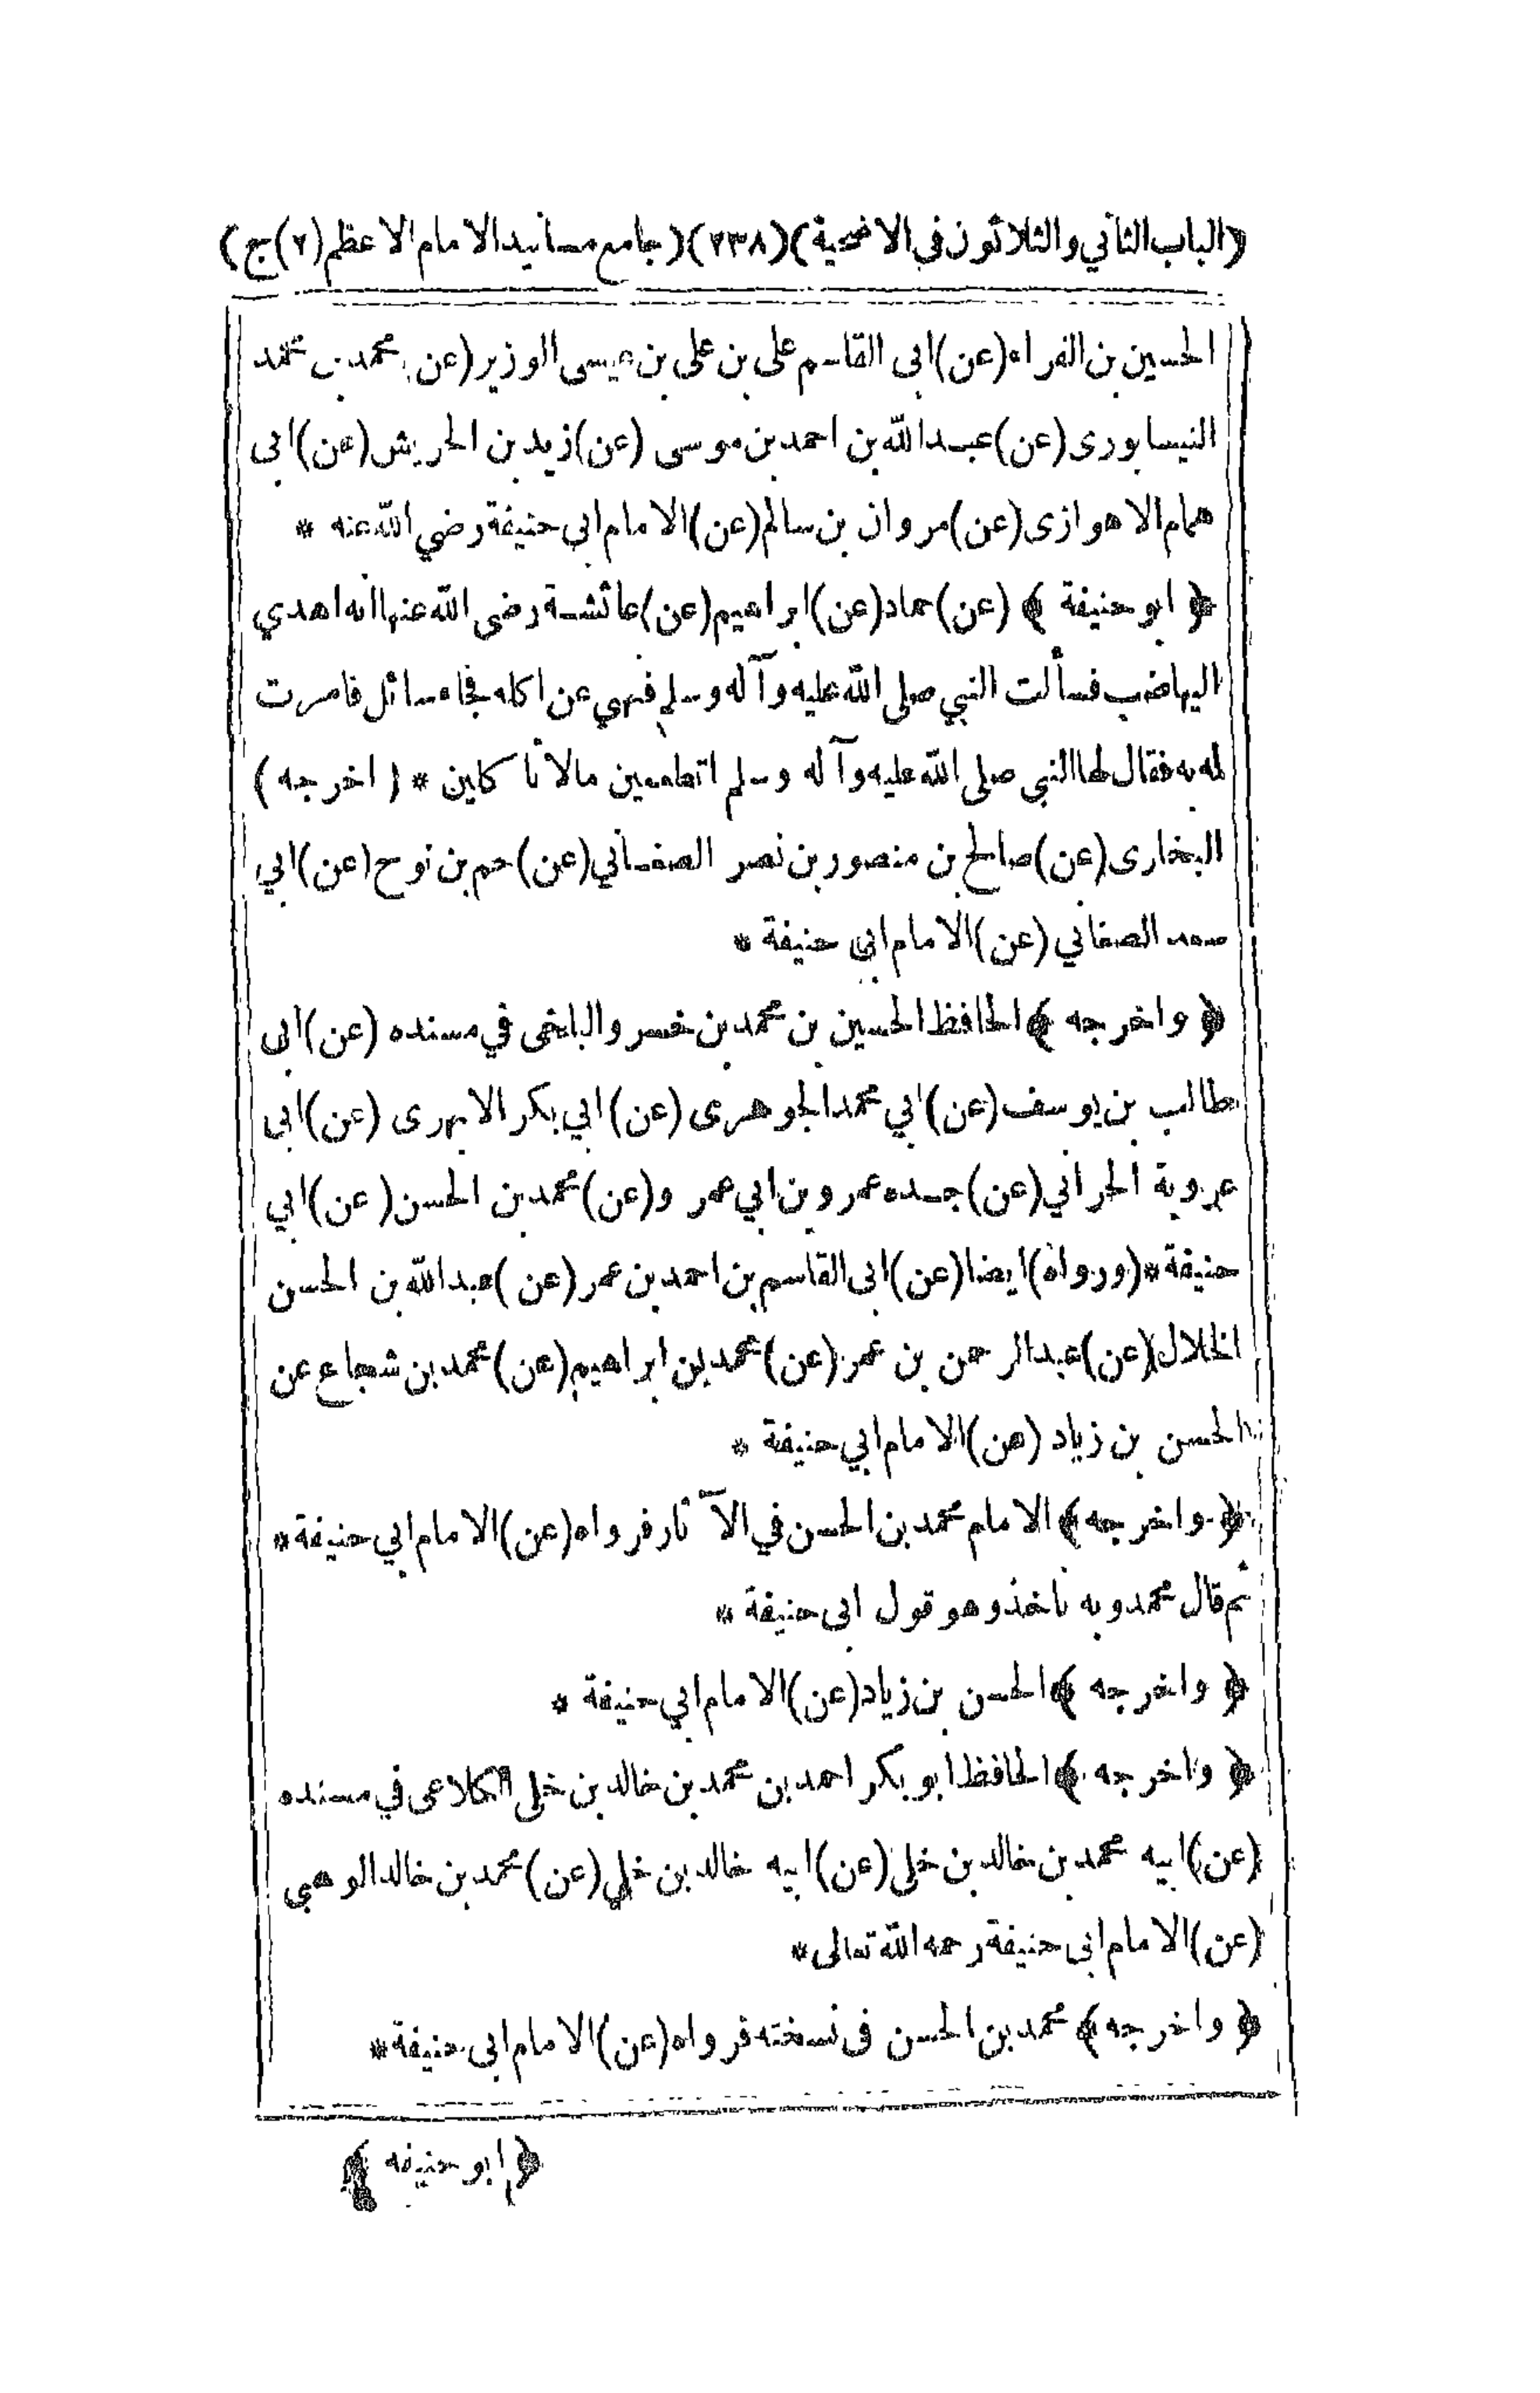 (الباب الثاني والثلاثون في الاضحية) (٢٣٨) (جامع مسانيد الامام الاعظم (٢) ج)
الحسين بن الفراء (عن) ابى القاسم على بن على بن عيسى الوزير (عن) محمد بن محمد
النيسابورى (عن) عبد الله بن احمد بن موسى (عن) زيد بن الحريش (عن) ابى
همام الاهوازى (عن) مروان بن سالم (عن) الامام ابي حنيفة رضي الله عنه *
﴿ ابو حنيفة ﴾ (عن) حماد (عن) ابراهيم (عن) عائشة رضى الله عنها انه اهدي
اليها ضب فسألت النبي صلى الله عليه وآله وسلم فنهى عن اكله فجاء سائل فامرت
له به فقال لها النبي صلى الله عليه وآله وسلم اتطعمين مالا تأكلين * (اخرجه)
البخارى (عن) صالح بن منصور بن نصر الصغاني (عن) حم بن نوح (عن) ابي
سعد الصغاني (عن) الامام ابى حنيفة *
﴿ واخرجه ﴾ الحافظ الحسين بن محمد بن خسرو البلخى في مسنده (عن) ابى
طالب بن يوسف (عن) ابي محمد الجوهرى (عن) ابي بكر الابهرى (عن) ابى
عروبة الحراني (عن) جده عمرو بن ابي عمر و (عن) محمد بن الحسن (عن) ابي
حنيفة * (ورواه) ايضا (عن) ابى القاسم بن احمد بن عمر (عن) عبد الله بن الحسن
الخلال (عن) عبد الرحمن بن عمر (عن) محمد بن ابراهيم (عن) محمد بن شجاع عن
الحسن بن زياد (عن) الامام ابي حنيفة *
﴿ واخرجه ﴾ الامام محمد بن الحسن في الآثار فرواه (عن) الامام ابي حنيفة *
ثم قال محمد وبه ناخذ وهو قول ابى حنيفة *
﴿ واخرجه ﴾ الحسن بن زياد (عن) الامام ابي حنيفة *
﴿ واخرجه ﴾ الحافظ ابو بكر احمد بن محمد بن خالد بن خلى الكلاعى في مسنده
(عن) ابيه محمد بن خالد بن خلى (عن) ابيه خالد بن خلي (عن) محمد بن خالد الوهبي
(عن) الامام ابى حنيفة رحمه الله تعالى *
﴿ واخرجه ﴾ محمد بن الحسن فى نسخته فرواه (عن) الامام ابى حنيفة *
﴿ ابو حنيفه ﴾